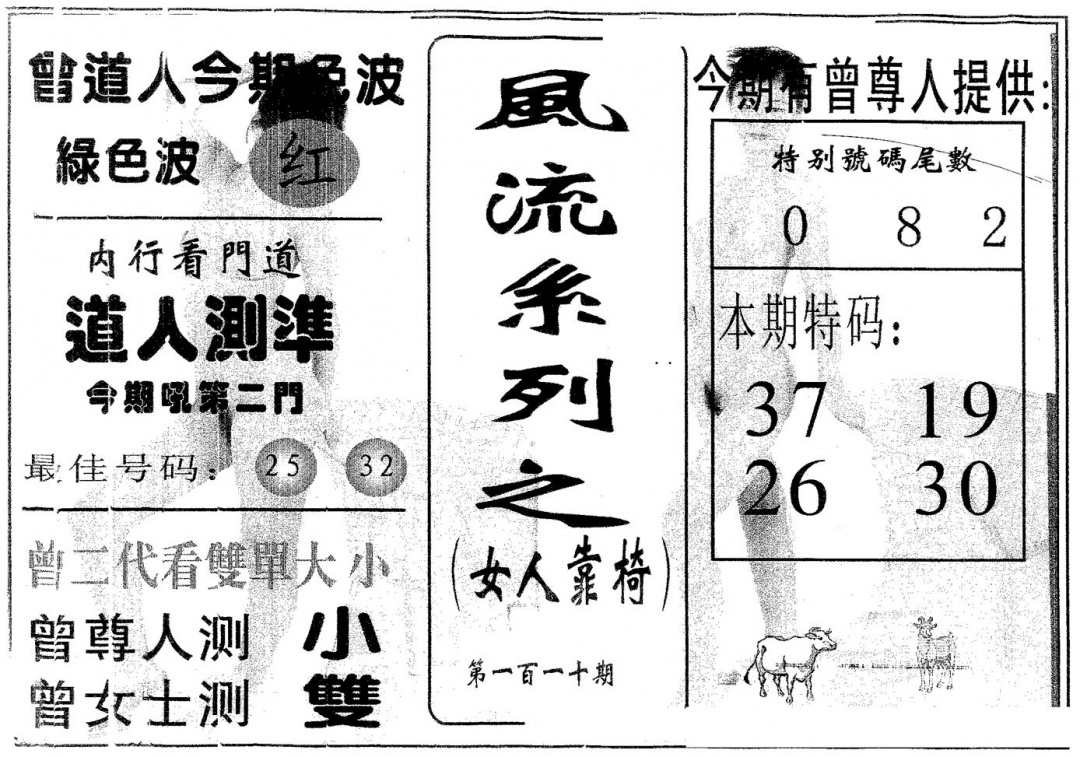 曾道人今期色波
綠色波 红
内行看門道
道人測準
今期吼第二門
最佳号码： 25 32
曾二代看雙單大小
曾尊人测 小
曾女士测 雙
風流系列之
(女人靠椅)
第一百一十期
今期有曾尊人提供:
特别號碼尾數
0 8 2
本期特码:
37 19
26 30